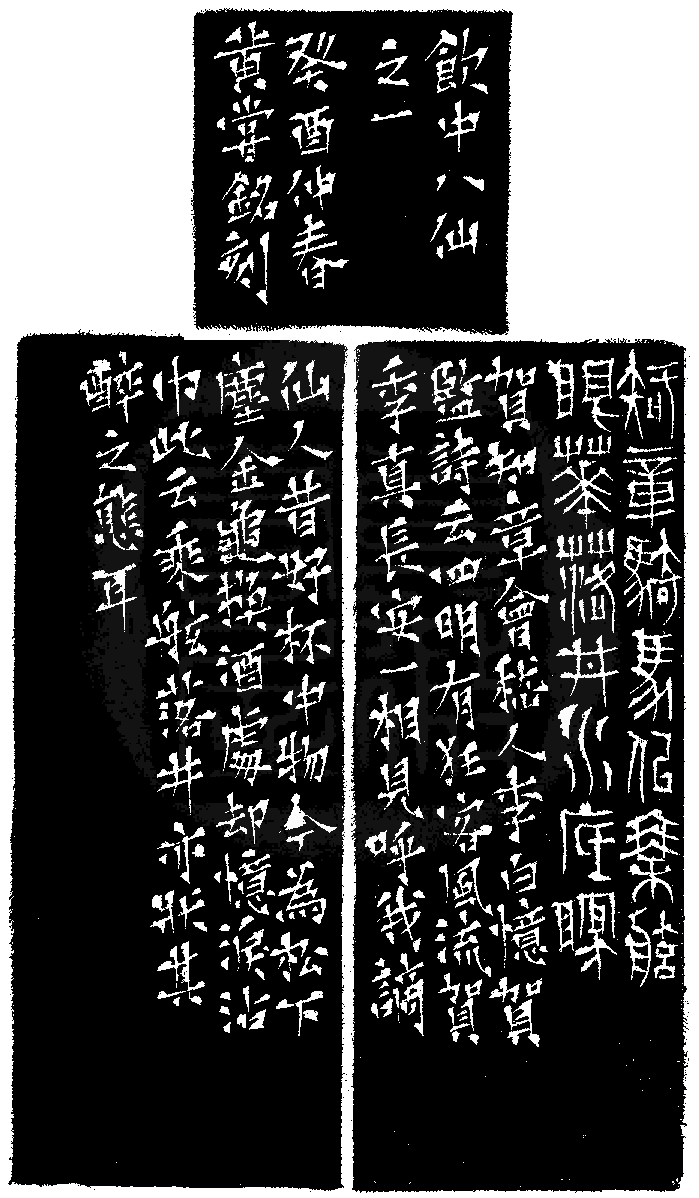 飲中八仙
之一
癸酉仲春
黄嘗銘刻
知章騎馬侣乘船
眼華落井水底瞑
賀知章會稽人李白憶賀
監詩云四明有狂客風流賀
季真長安一相見呼我謫
仙人昔好杯中物今為松下
塵金龜換酒處却憶淚沾
巾此云乘船落井亦狀其
醉之態耳